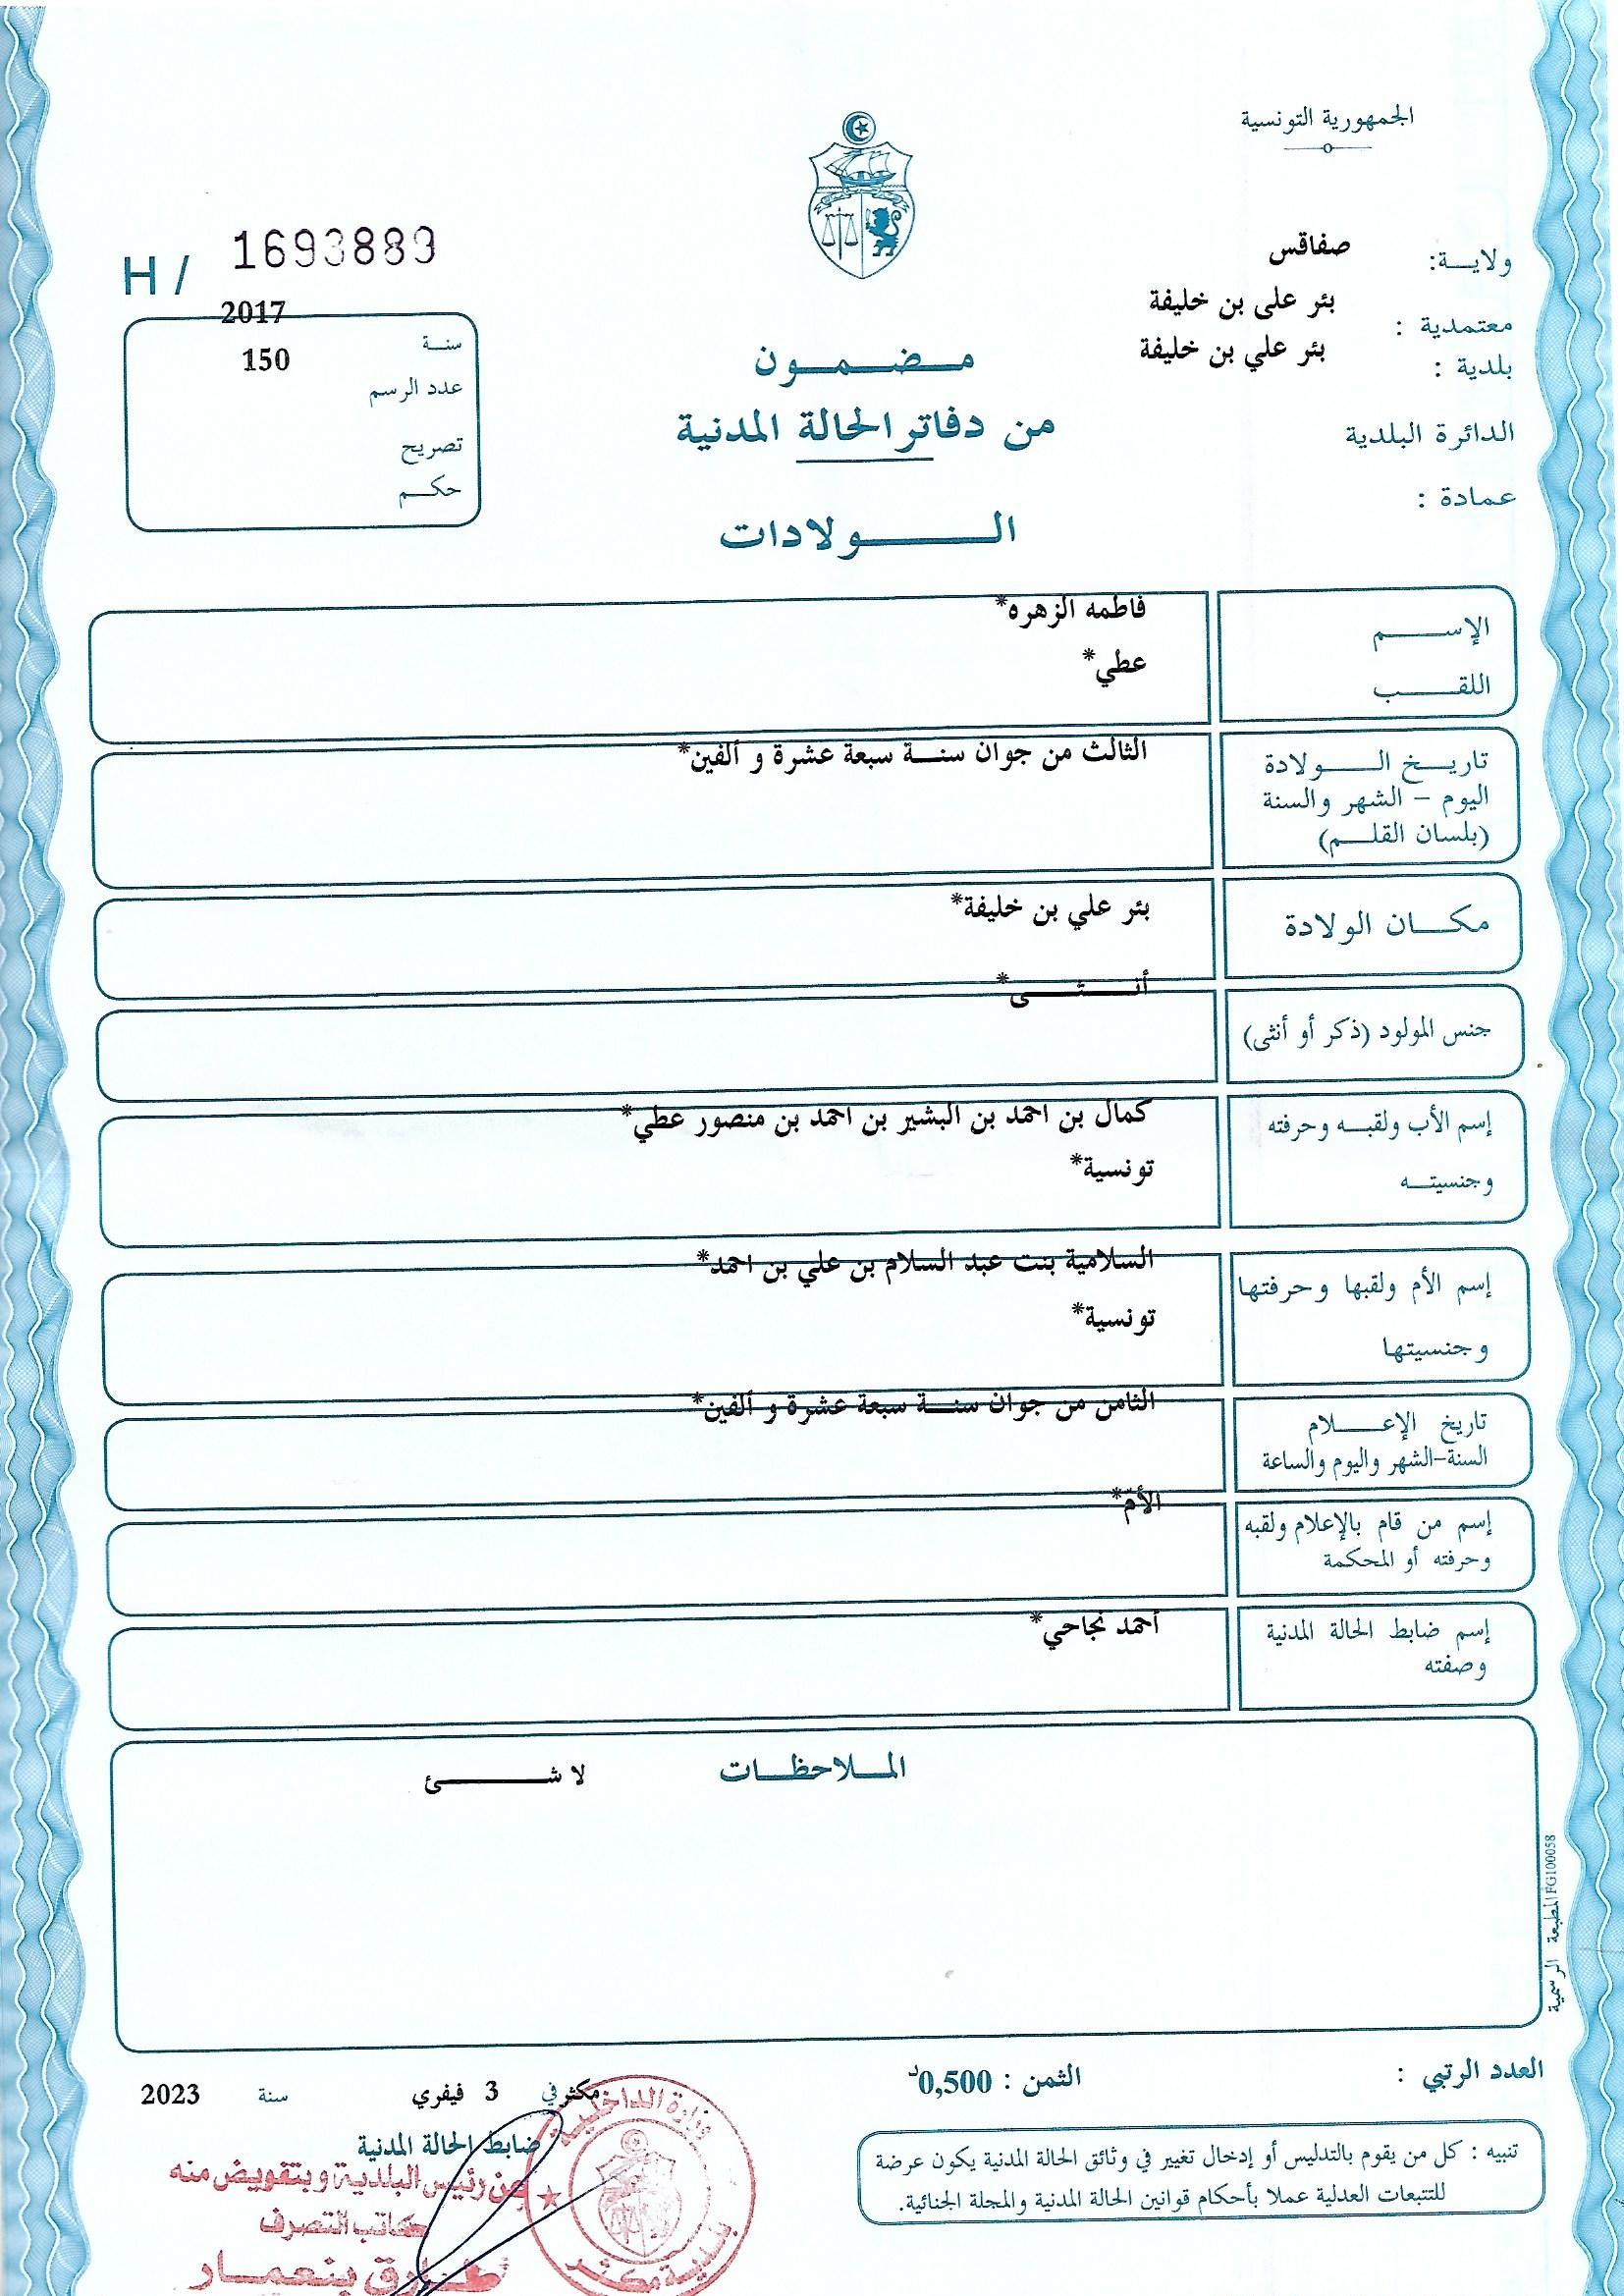 الجمهورية التونسية
H / 1693889
ولايــة: صفاقس
معتمدية : بئر على بن خليفة
بلدية : بئر علي بن خليفة
الدائرة البلدية
عمادة :
سنة 2017
عدد الرسم 150
تصريح
حكم
مضمون
من دفاتر الحالة المدنية
الولادات
الإسم فاطمه الزهره*
اللقب عطي*
تاريخ الولادة الثالث من جوان سنة سبعة عشرة و ألفين*
اليوم – الشهر والسنة
(بلسان القلم)
مكان الولادة بئر علي بن خليفة*
جنس المولود (ذكر أو أنثى) أنثى*
إسم الأب ولقبه وحرفته كمال بن احمد بن البشير بن احمد بن منصور عطي*
وجنسيته تونسية*
إسم الأم ولقبها وحرفتها السلامية بنت عبد السلام بن علي بن احمد*
وجنسيتها تونسية*
تاريخ الإعلام الثامن من جوان سنة سبعة عشرة و ألفين*
السنة-الشهر واليوم والساعة
إسم من قام بالإعلام ولقبه الأمّ*
وحرفته أو المحكمة
إسم ضابط الحالة المدنية أحمد نجاحي*
وصفته
الملاحظات لا شئ
المطبعة الرسمية FG100058
العدد الرتبي :
الثمن : 0,500د
مكثر في 3 فيفري سنة 2023
ضابط الحالة المدنية
عن رئيس البلدية وبتفويض منه
كاتب التصرف
طارق بنعمار
وزارة الداخلية
بلدية مكثر
تنبيه : كل من يقوم بالتدليس أو إدخال تغيير في وثائق الحالة المدنية يكون عرضة
للتتبعات العدلية عملا بأحكام قوانين الحالة المدنية والمجلة الجنائية.